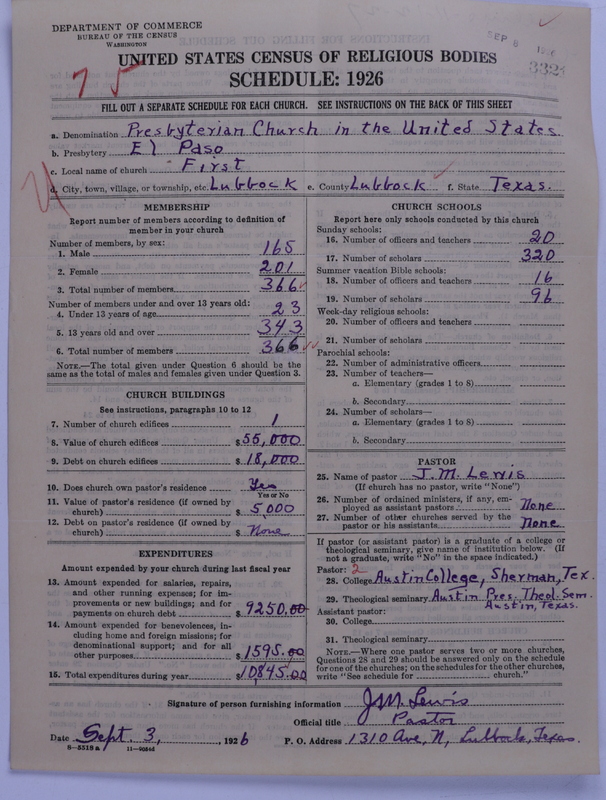 DEPARTMENT OF COMMERCE
BUREAU OF THE CENSUS
WASHINGTON
SEP 8
UNITED STATES CENSUS OF RELIGIOUS BODIES
SCHEDULE: 1926
7 5
FILL OUT A SEPARATE SCHEDULE FOR EACH CHURCH. SEE INSTRUCTIONS ON THE BACK OF THIS SHEET
a. Denomination Presbyterian Church in the United States
b. Presbytery El Paso
c. Local name of church First
d. City, town, village, or township, etc. Lubbock e. County Lubbock f. State Texas.
MEMBERSHIP
Report number of members according to definition of
member in your church
Number of members, by sex:
1. Male 165
2. Female 201
3. Total number of members 366
Number of members under and over 13 years old:
4. Under 13 years of age 23
5. 13 years old and over 343
6. Total number of members 366
NOTE.—The total given under Question 6 should be
same as the total of males and females given under Question 3.
CHURCH BUILDINGS
See instructions, paragraphs 10 to 12
7. Number of church edifices 1
8. Value of church edifices $55,000
9. Debt on church edifices $18,000
10. Does church own pastor's residence Yes
Yes or No
11. Value of pastor's residence (if owned by
church) $5,000
12. Debt on pastor's residence (if owned by
church) $None
EXPENDITURES
Amount expended by your church during last fiscal year
13. Amount expended for salaries, repairs,
and other running expenses; for im-
provements or new buildings; and for
payments on church debt $9250.00
14. Amount expended for benevolences, in-
cluding home and foreign missions; for
denominational support; and for all
other purposes $1595.00
15. Total expenditures during year $10845.00
CHURCH SCHOOLS
Report here only schools conducted by this church
Sunday schools:
16. Number of officers and teachers 20
17. Number of scholars 320
Summer vacation Bible schools:
18. Number of officers and teachers 16
19. Number of scholars 96
Week-day religious schools:
20. Number of officers and teachers
21. Number of scholars
Parochial schools:
22. Number of administrative officers
23. Number of teachers—
a. Elementary (grades 1 to 8)
b. Secondary
24. Number of scholars—
a. Elementary (grades 1 to 8)
b. Secondary
PASTOR
25. Name of pastor J. M. Lewis
(If church has no pastor, write "None")
26. Number of ordained ministers, if any, em-
ployed as assistant pastors None
27. Number of other churches served by the
pastor or his assistants None
If pastor (or assistant pastor) is a graduate of a college or
theological seminary, give name of institution below. (If
not a graduate, write "No" in the space indicated.)
Pastor: 2
28. College Austin College, Sherman, Tex.
29. Theological seminary Austin Pres. Theol. Sem.
Austin, Texas.
Assistant pastor:
30. College
31. Theological seminary
NOTE.—Where one pastor serves two or more churches,
Questions 28 and 29 should be answered only on the schedule
for one of the churches; on the schedules for the other churches,
write "See schedule for church."
Signature of person furnishing information J M. Lewis
Official title Pastor
Date Sept. 3, 1926 P. O. Address 1310 Ave, N, Lubbock, Texas.
8—5518 a